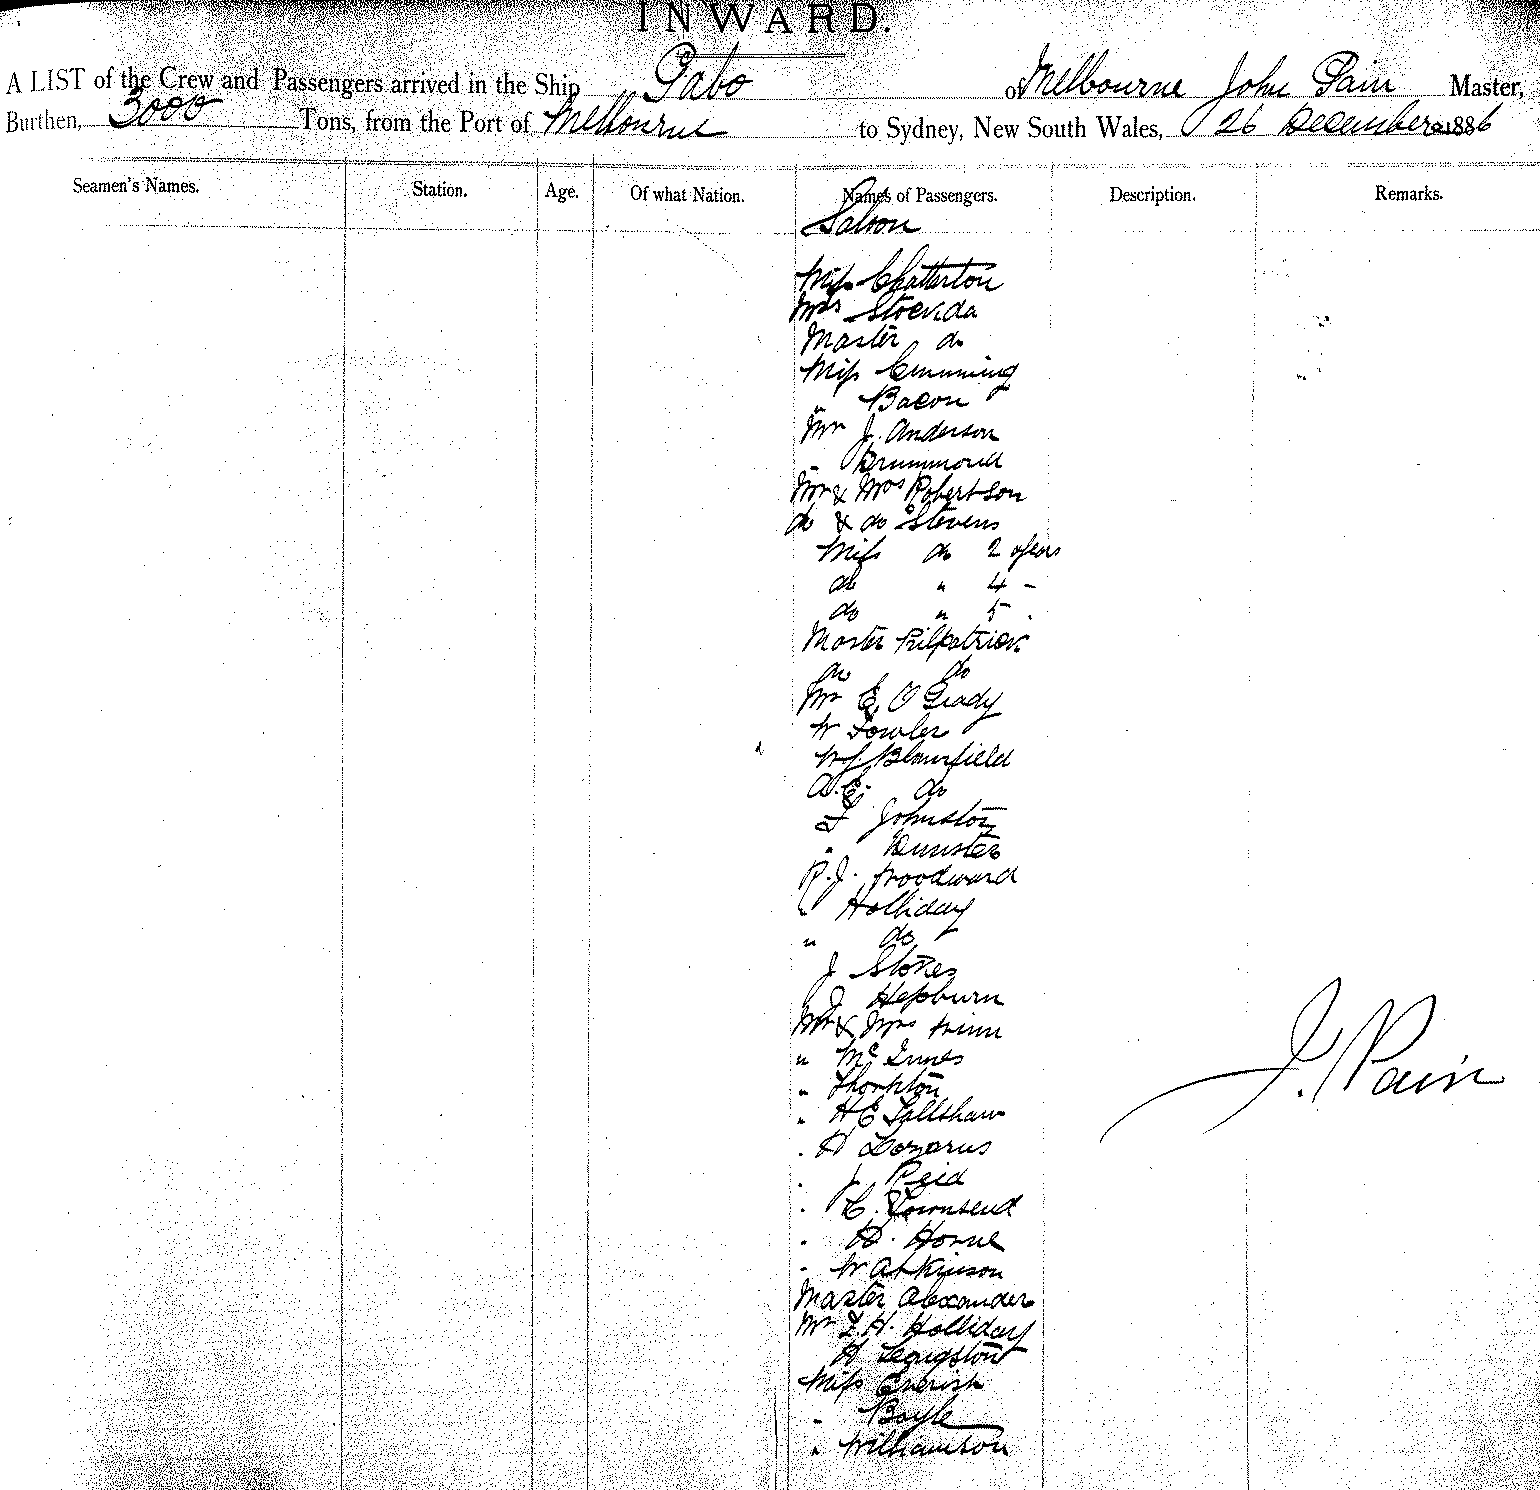 INWARD.
A LIST of the Crew and Passengers arrived in the Ship Gabo of Melbourne John Pain Master,
Burthen, 3000 Tons, from the Port of Melbourne to Sydney, New South Wales, 26 December 1886
Seamen's Names. Station. Age. Of what Nation. Names of Passengers. Description. Remarks.
Saloon
Miss Chatterton
Mrs
Master do
Miss Cumming
" Bacon
Mr J. Anderson
" Drummond
Mr & Mrs Robertson
do & do Stevens
Miss do 2 years
do " 4 -
do " 5
Master Kilpatrick
do do
Mr E. O Grady
W Fowler
W J Blomfield
A. E. do
F Johnston
" Dunster
R. J. Woodward
" Holliday
" do
J Stokes
J Hepburn
Mr & Mrs Winn
" Mc Innes
" Thornton
" H E
. H Lazarus
. J. Reid
. C. Townsend
. H. Horne
. W Atkinson
Master Alexander
Mr F. H. Holliday
H
Miss
" Boyle
" Williamson
J. Pain